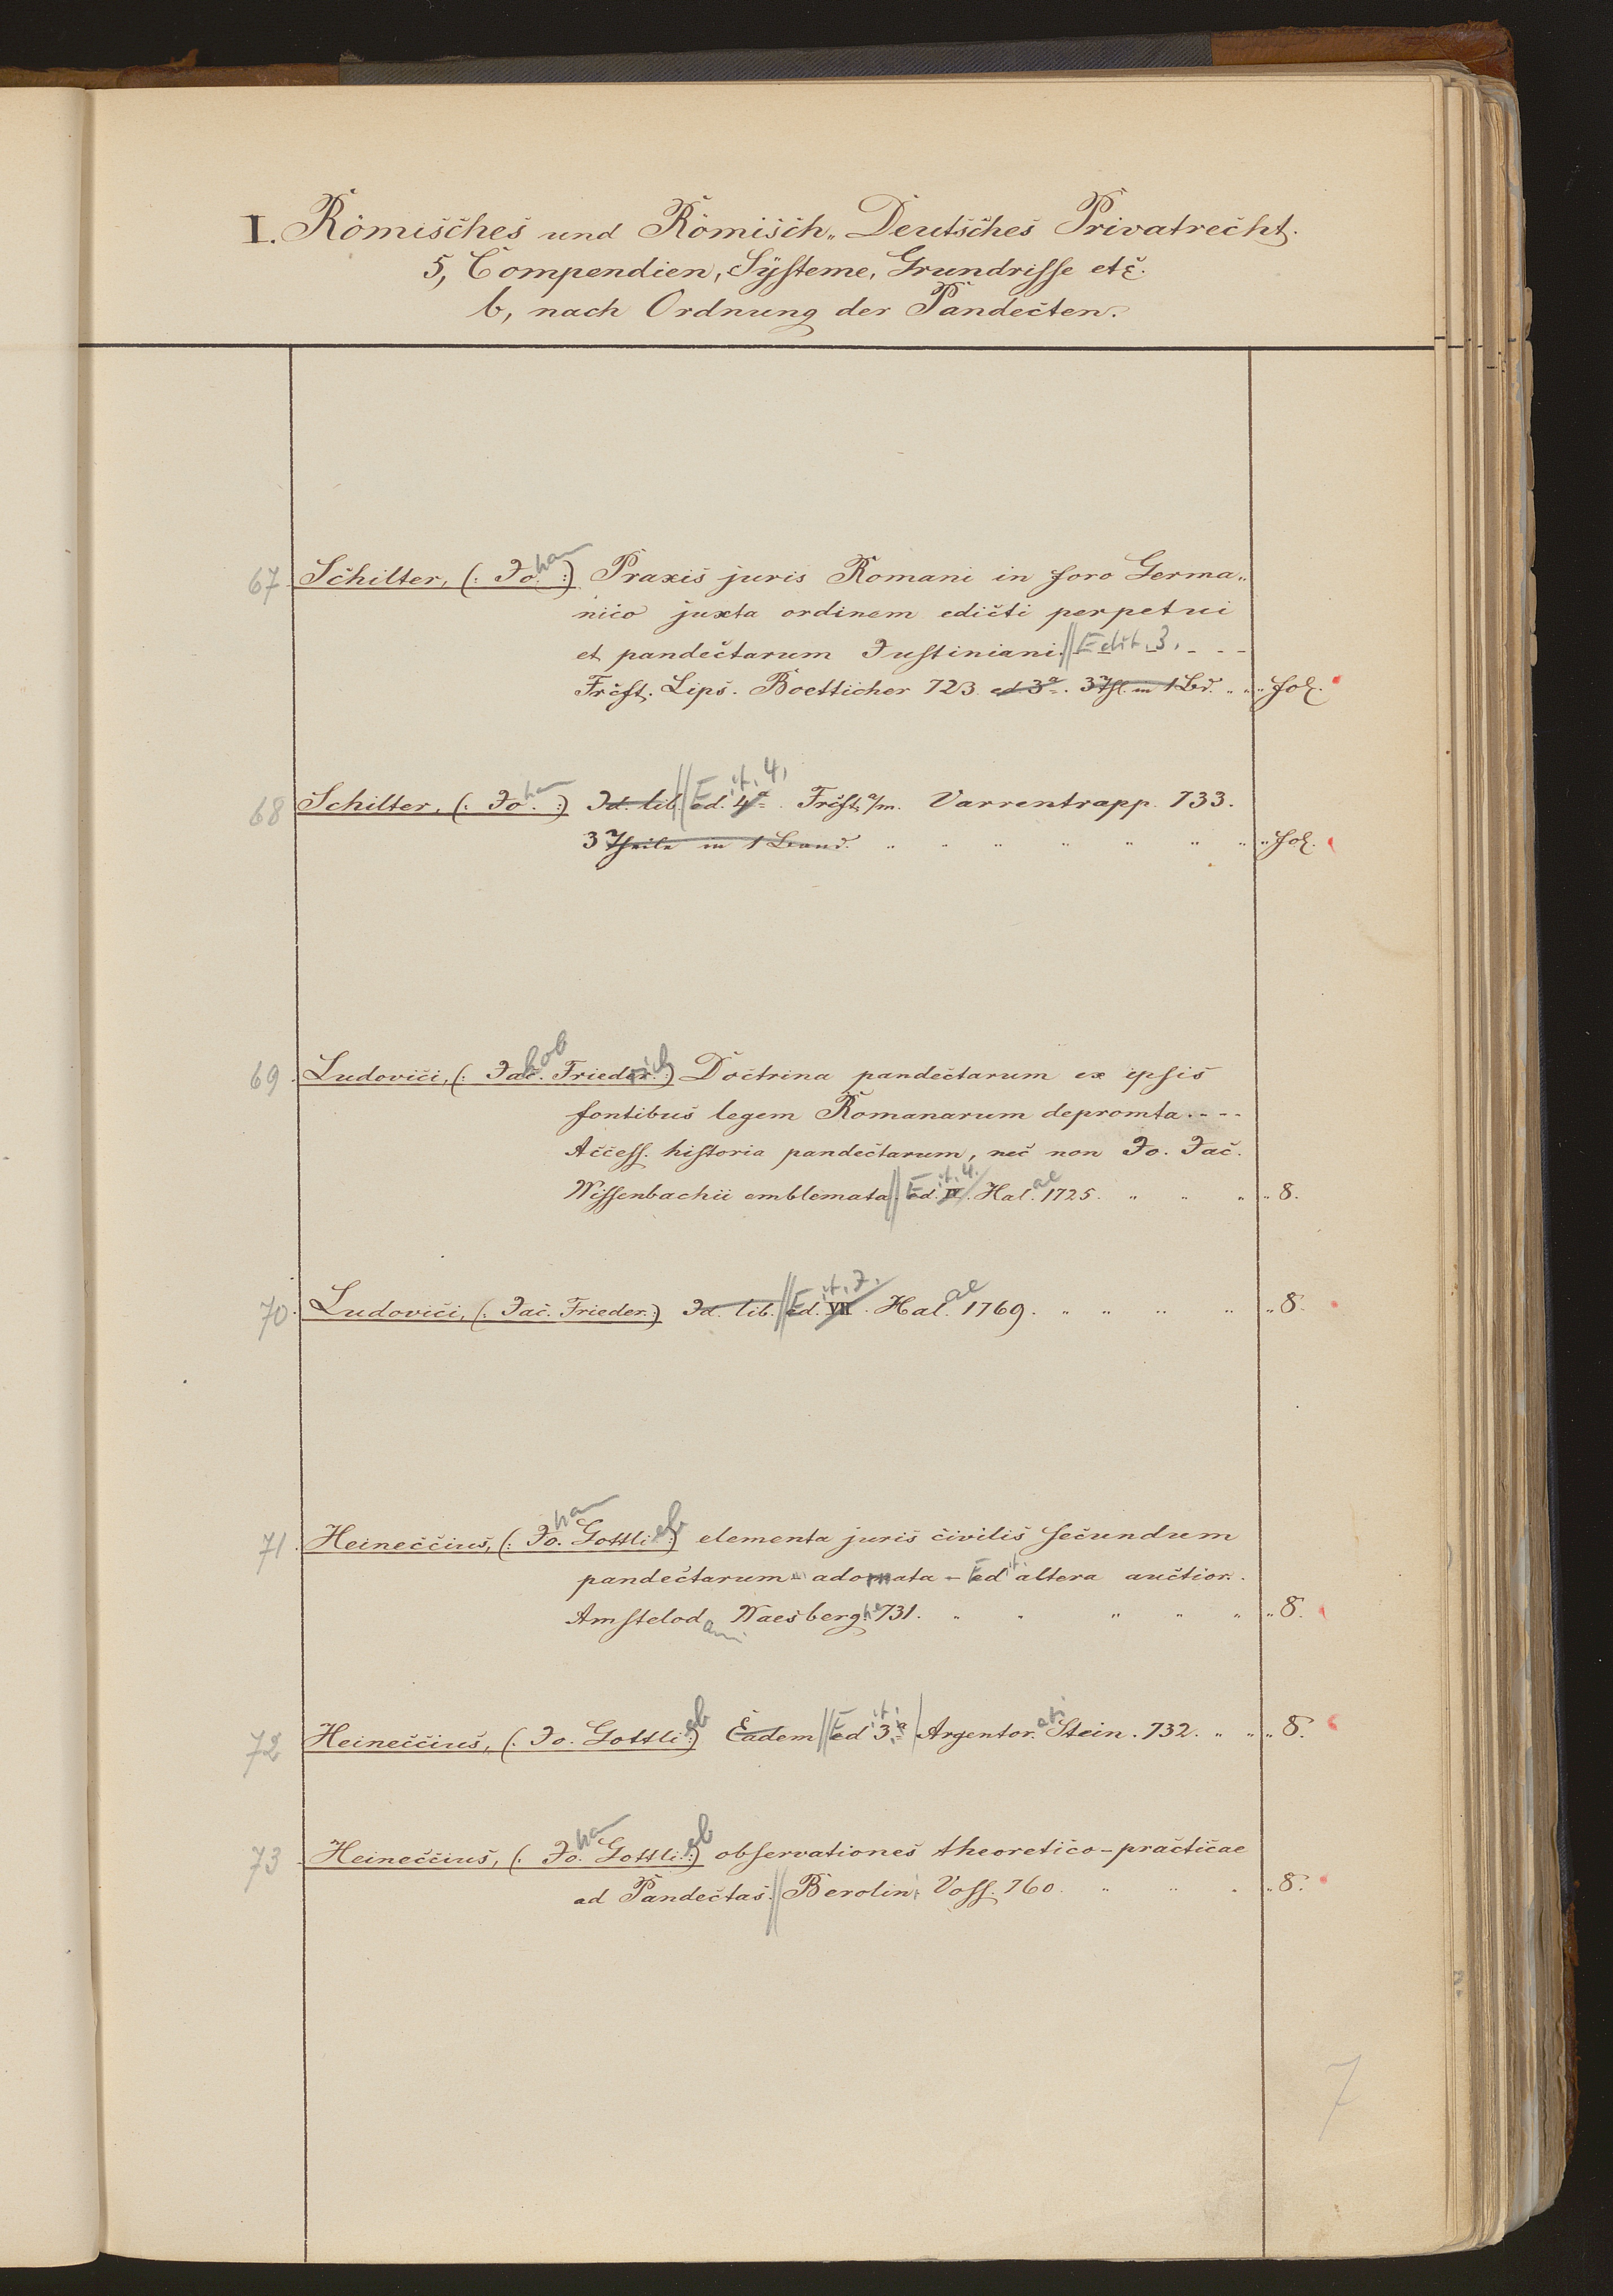 I. Römisches und Römisch„ Deutsches Privatrecht.
5, Compendien, Systeme, Grundrisse etc.
b, nach Ordnung der Pandecten.
67 Schilter, (: Johan :) Praxis juris Romani in foro Germa„
nico juxta ordinem edicti perpetui
et pandectarum Justiniani. // Edit. 3. - - -
Frcft. Lips. Boetticher 723. ed 3a. 3 Thl. in 1 Bd. „ „ „ fol.
68 Schilter, (: Johan :) Id. lib. // Edit. 4, ed. 4a. Frcft a/m. Varrentrapp. 733.
3 Theile in 1 Band. „ „ „ „ „ „ „ „ fol.
69. Ludovici, (: Jakob Friederich :) Doctrina pandectarum ex ipsis
fontibus legem Romanarum depromta. - - -
Access. historia pandectarum, nec non Jo. Jac.
Wissenbachii emblemata. // Edit. 4. IV. Hal.ae 1725. „ „ „ „ 8.
70. Ludovici, (: Jac. Frieder. :) Id. lib. // Edit. 7. VII. Hal.ae 1769. „ „ „ „ „ 8.
71. Heineccius, (: Johan Gottlieb :) elementa juris civilis secundum
pandectarum - adornata - Edit. altera auctior.
Amstelodami Waesberghe 731. „ „ „ „ „ „ 8.
72 Heineccius, (: Jo. Gottlieb :) Eadem // Edit. 3.a / Argentorati Stein. 732. „ „ „ 8.
73 Heineccius, (: Johan Gottlieb :) observationes theoretico-practicae
ad Pandectas. // Berolin. Voss. 760. „ „ „ „ 8.
7